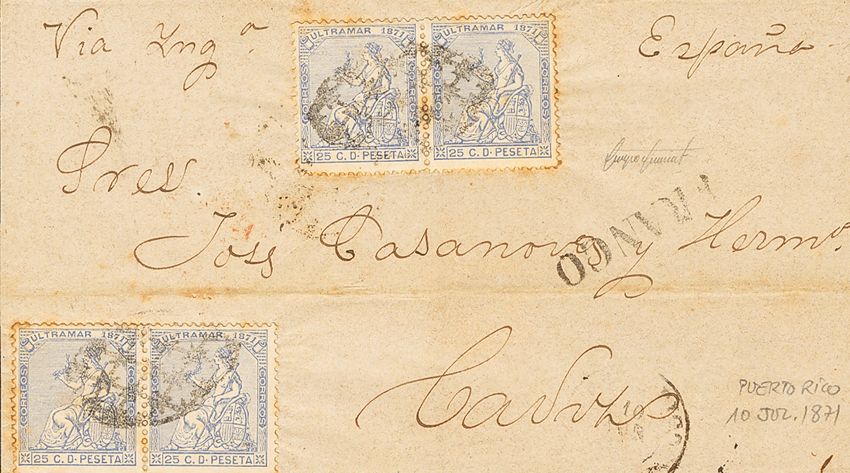 Via Ing.ª
ULTRAMAR 1871 ULTRAMAR 1871
CORREOS CORREOS CORREOS CORREOS
25 C. D. PESETA 25 C. D. PESETA
España
Sres
FRANCO
José Casanova y Hermº.
ULTRAMAR 1871 ULTRAMAR 1871
CORREOS CORREOS CORREOS CORREOS
25 C. D. PESETA 25 C. D. PESETA
Cadiz
PUERTO RICO
10 JUL. 1871